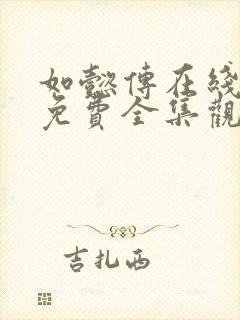 如懿傳在綫
免費全集觀
吉扎西